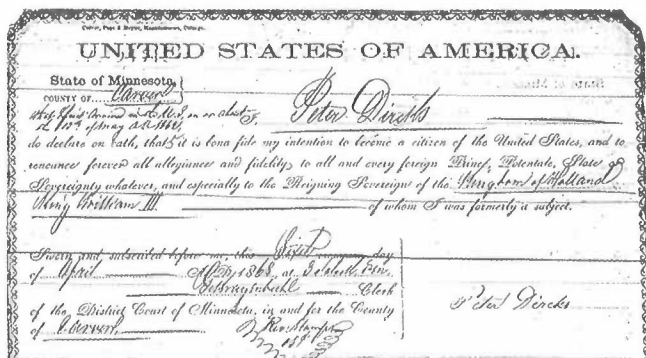 UNITED STATES OF AMERICA.
State of Minnesota,
COUNTY OF Carver
I, Peter Dircks
do declare on oath, that it is bona fide my intention to become a citizen of the United States, and to
renounce forever all allegiance and fidelity to all and every foreign Prince, Potentate, State or
Sovereignty whatever, and especially to the Reigning Sovereign of the Kingdom of Holland
King William III. of whom I was formerly a subject.
Sworn and subscribed before me, this day
of April A.D. 1868, at
Clerk
of the District Court of Minnesota, in and for the County
of Carver
Peter Dircks